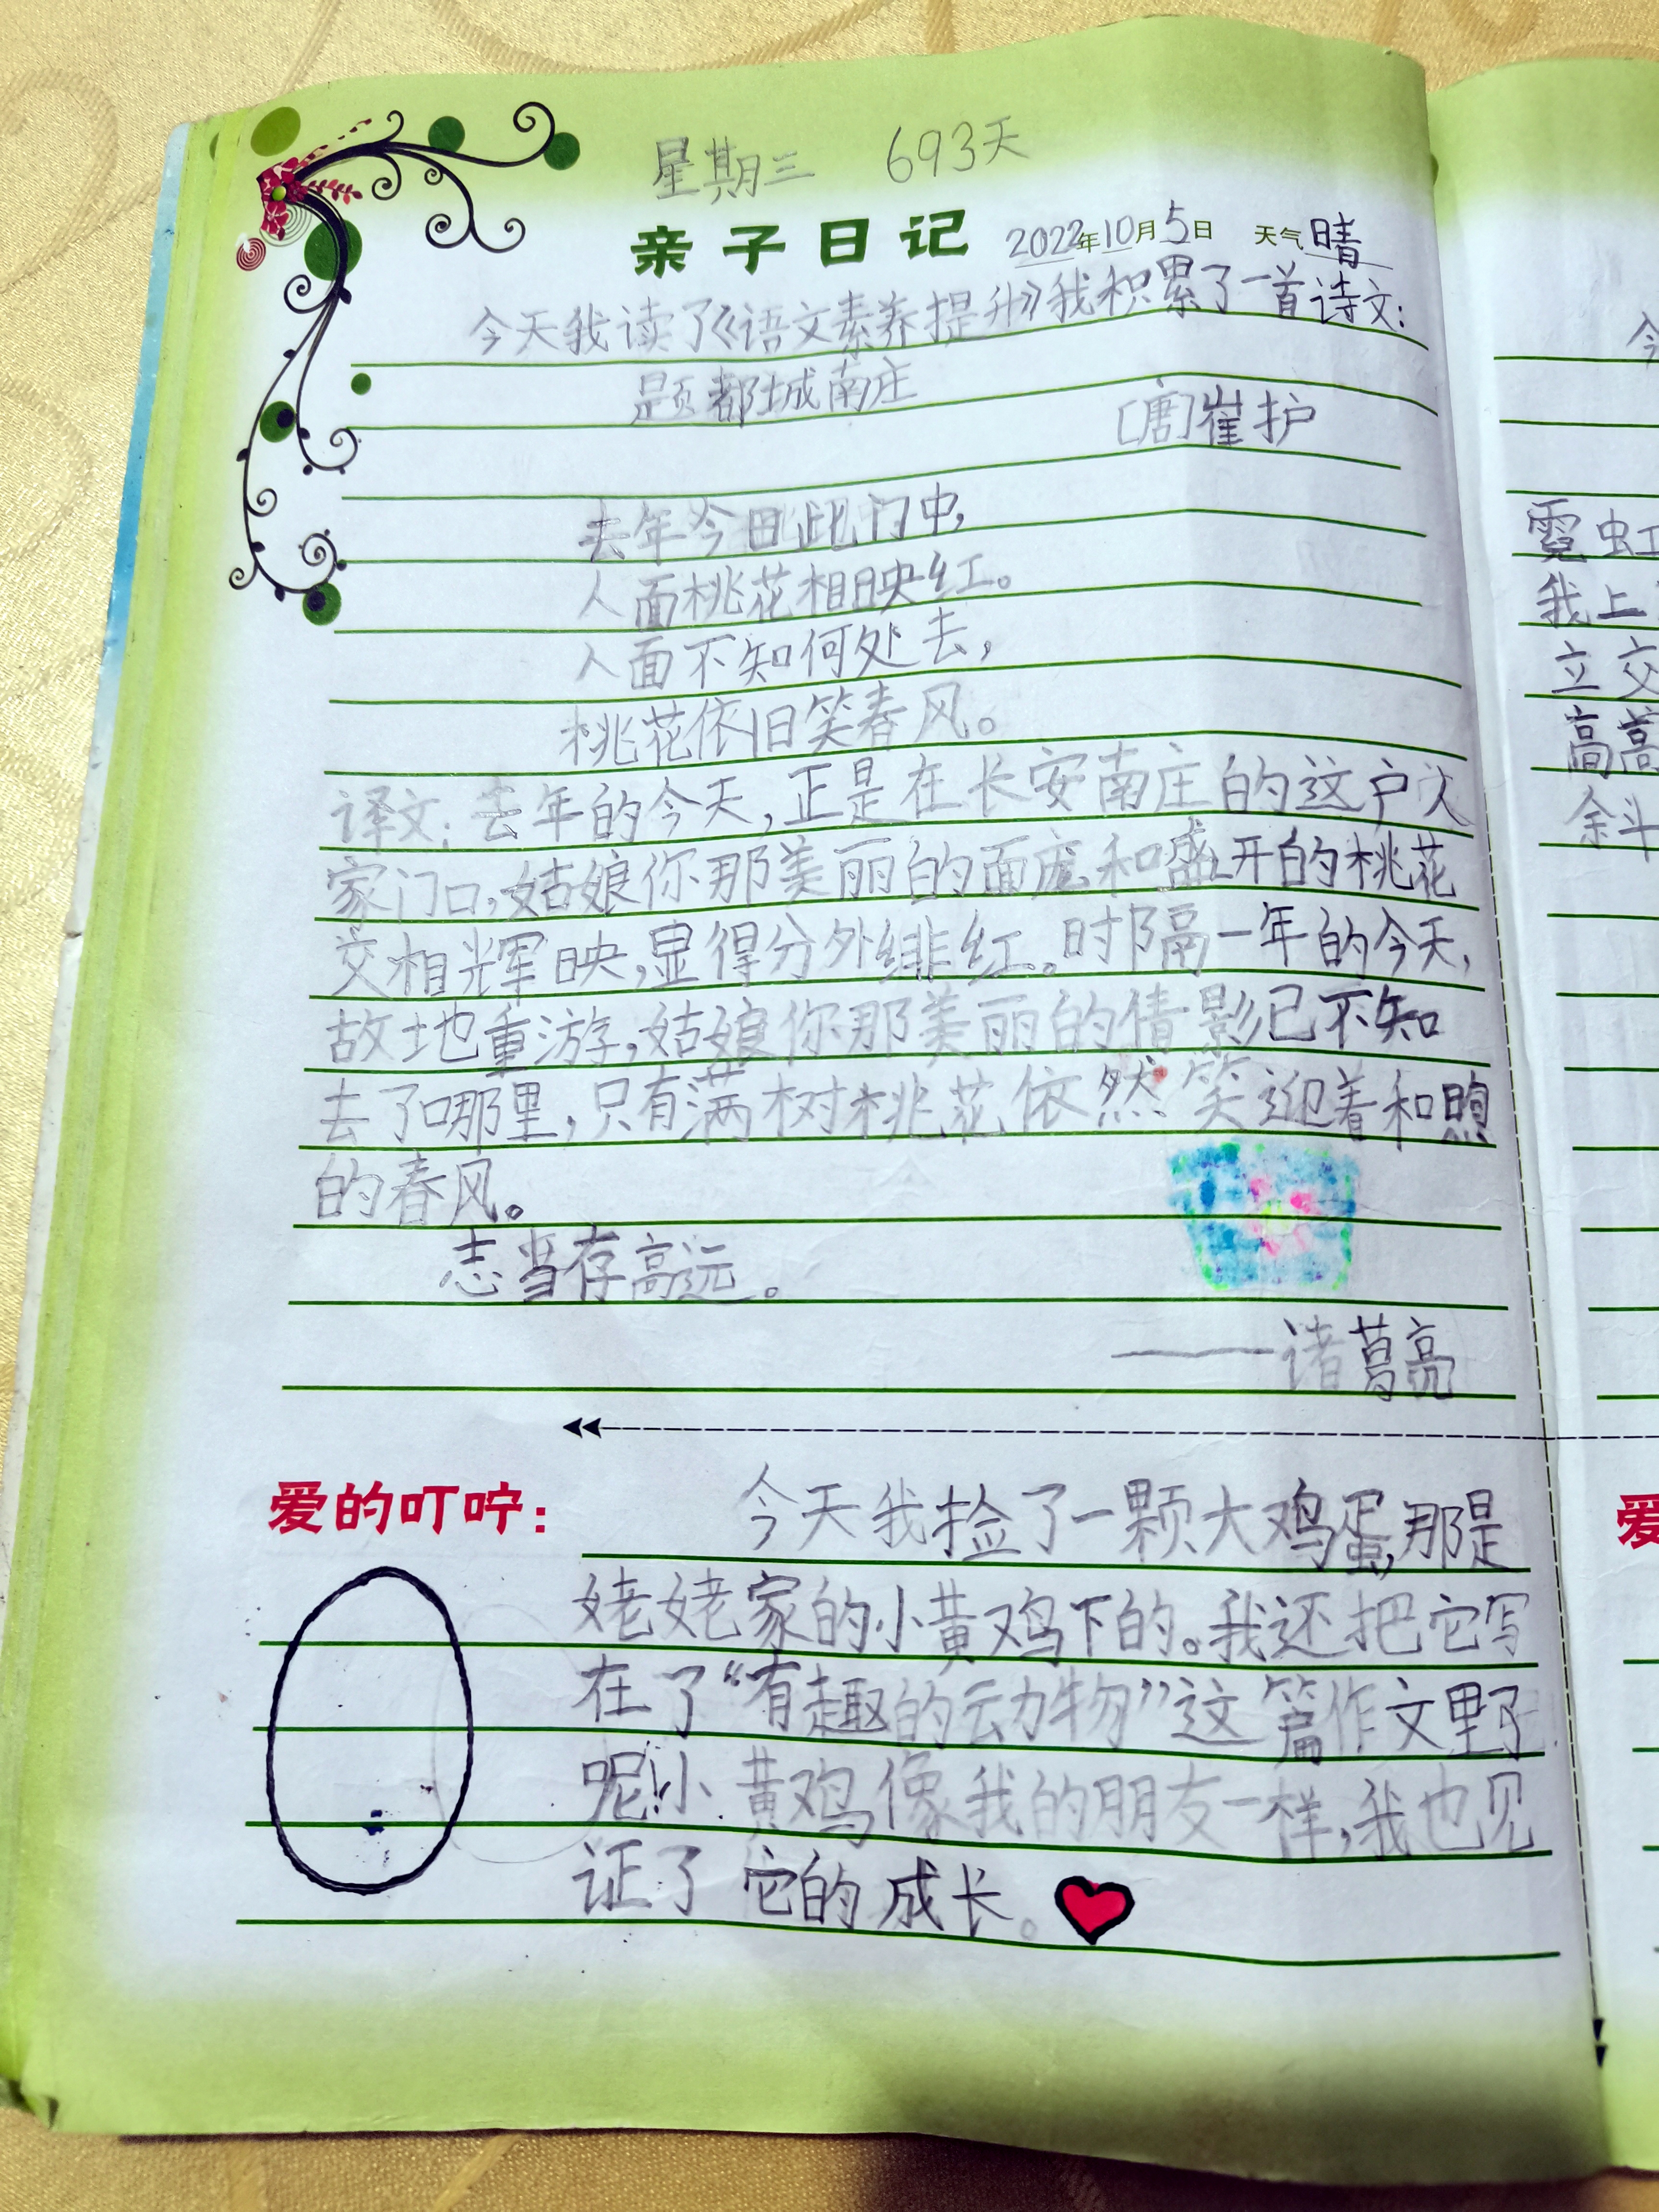 星期三 693天
亲子日记 2022年10月5日 天气晴
今天我读了《语文素养提升》我积累了一首诗文:
题都城南庄
[唐]崔护
去年今日此门中,
人面桃花相映红。
人面不知何处去,
桃花依旧笑春风。
译文:去年的今天,正是在长安南庄的这户人
家门口,姑娘你那美丽的面庞和盛开的桃花
交相辉映,显得分外绯红。时隔一年的今天,
故地重游,姑娘你那美丽的倩影已不知
去了哪里,只有满树桃花依然笑迎着和煦
的春风。
志当存高远。
——诸葛亮
爱的叮咛:
今天我捡了一颗大鸡蛋,那是
姥姥家的小黄鸡下的。我还把它写
在了“有趣的动物”这篇作文里了
呢!小黄鸡像我的朋友一样,我也见
证了它的成长。
霓虹
我上
立交
高高
余斗
爱